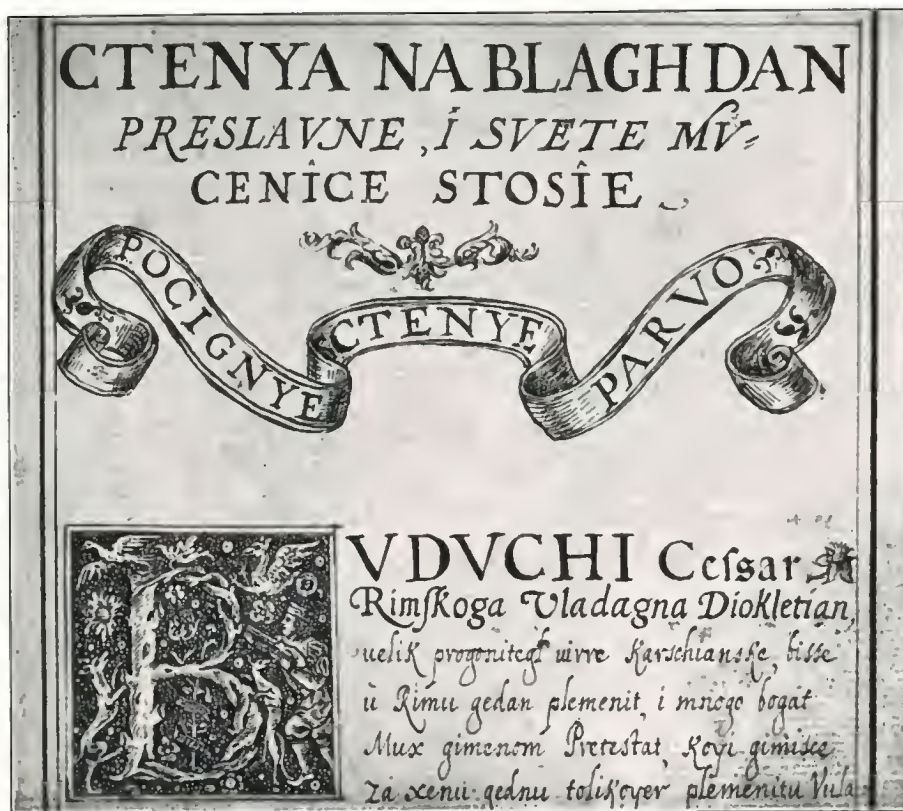 CTENYA NA BLAGHDAN
PRESLAVNE, I SVETE MV=
CENICE STOSIE
POCIGNYE CTENYE PARVO
BVDVCHI Cesſar
Rimſkoga Vladagna Diokletian,
uelik progonitegl uirre Karschianske, bisse
ù Rimu gedan plemenit, i mnogo bogat
Mux gimenom Pretestat, Koyi gimisce
za xenu gednu tolikoyer plemenitu Vula